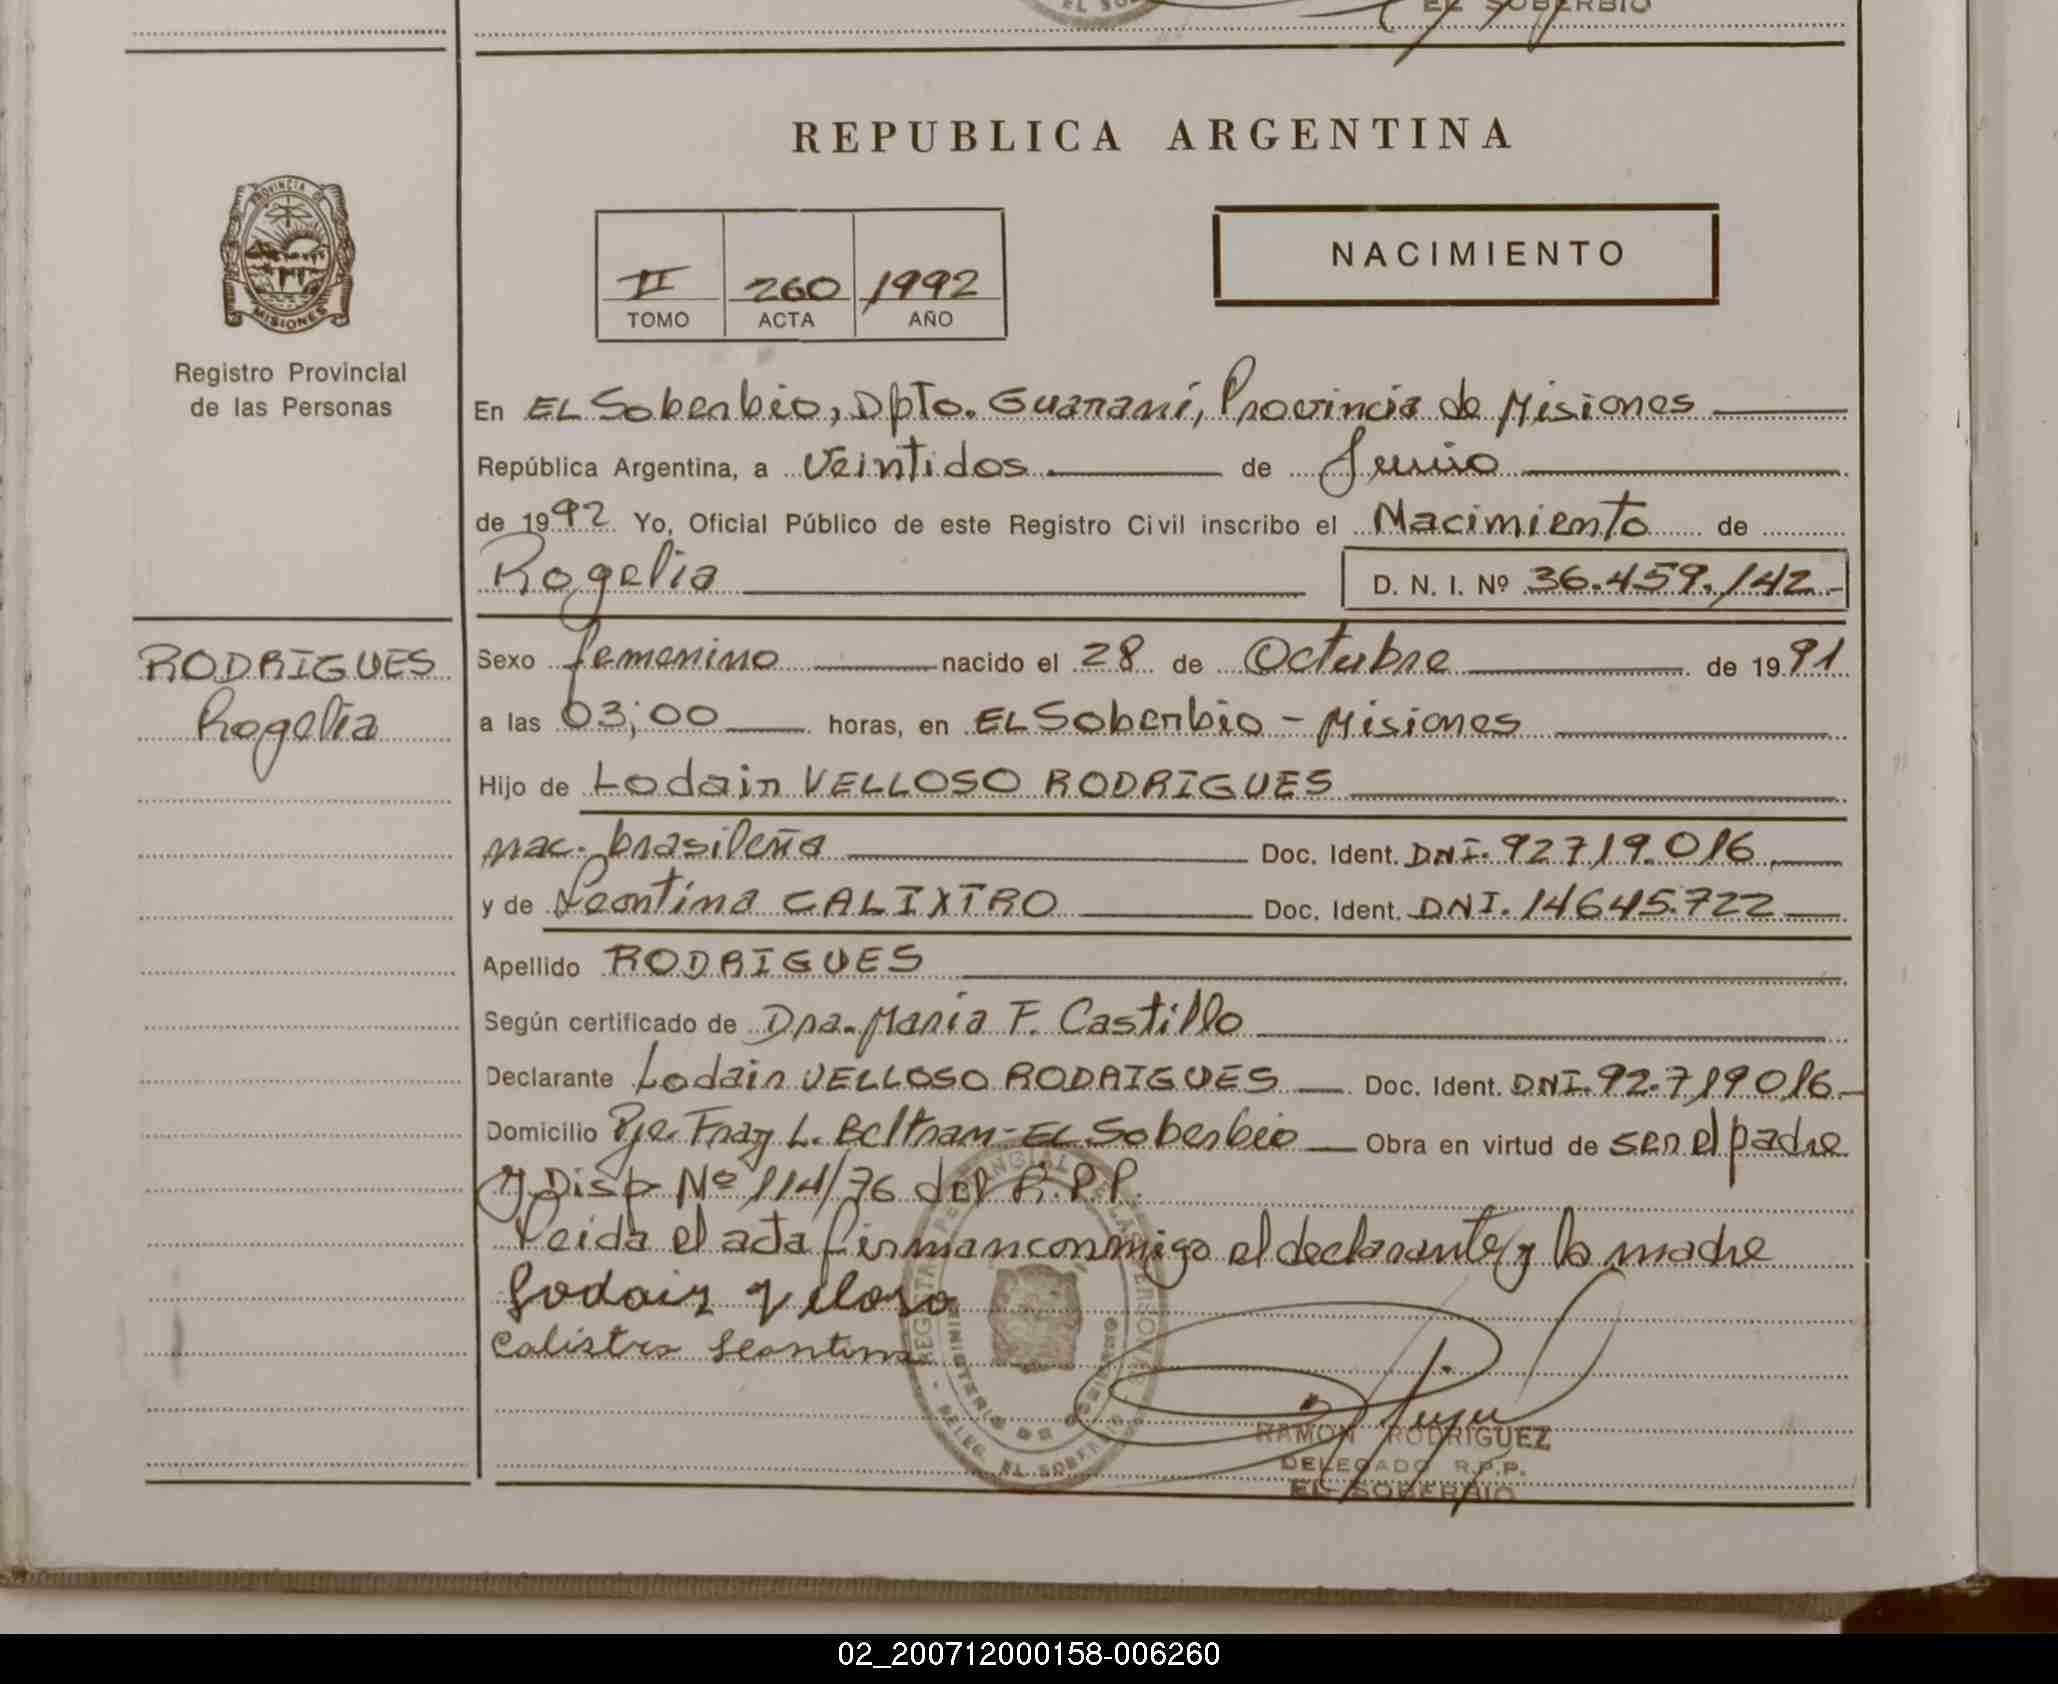 EL SOBERBIO
REPUBLICA ARGENTINA
PROVINCIA DE
MISIONES
Registro Provincial
de las Personas
II 260 1992
TOMO ACTA AÑO
NACIMIENTO
En EL Soberbio, Dpto. Guaraní, Provincia de Misiones
República Argentina, a Veintidos de Junio
de 1992 Yo, Oficial Público de este Registro Civil inscribo el Nacimiento de
Rogelia D. N. I. Nº 36.459.142.-
RODRIGUES
Rogelia
Sexo femenino nacido el 28 de Octubre de 1991
a las 03;00 horas, en EL Soberbio - Misiones
Hijo de Lodain VELLOSO RODRIGUES
nac. brasileña Doc. Ident. DNI. 92719.016
y de Leontina CALIXTRO Doc. Ident. DNI. 14645.722
Apellido RODRIGUES
Según certificado de Dra. María F. Castillo
Declarante Lodain VELLOSO RODRIGUES Doc. Ident. DNI. 92.719016
Domicilio Pje. Fray L. Beltram - EL Soberbio Obra en virtud de ser el padre
y Disp Nº 114/76 del R.P.P.
Leida el acta firman conmigo el declarante y la madre
Lodain Veloso
Calistro Leontina
DELEG. EL SOBERBIO
RAMON RODRIGUEZ
DELEGADO R.P.P.
EL SOBERBIO
02_200712000158-006260